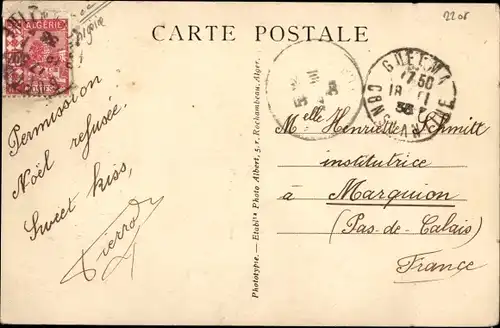 2208
ALGÉRIE
POSTES
Algérie
CARTE POSTALE
GUELMA
17 50
18 11
CONSTANTINE
Permission
Noël refusée.
Sweet kiss,
Pierrot
Phototypie. — Etablts Photo Albert, 5, r. Rochambeau, Alger.
Melle Henriette Schmitt
institutrice
à Marquion
(Pas-de-Calais)
France